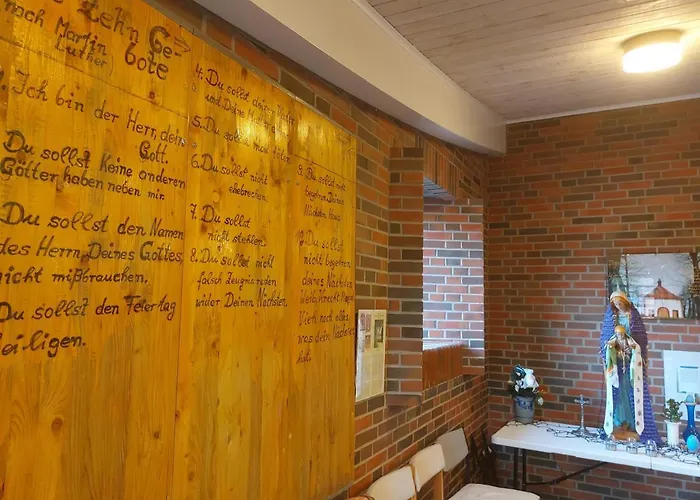 Zehn Ge-
bote
nach Martin
Luther)
1. Ich bin der Herr, dein
Gott.
Du sollst keine anderen
Götter haben neben mir
Du sollst den Namen
des Herrn, Deines Gottes,
nicht mißbrauchen.
Du sollst den Feiertag
heiligen.
4. Du sollst deinen Vater
und Deine Mutter
5. Du sollst nicht töten.
6. Du sollst nicht
ehebrechen.
7. Du sollst
nicht stehlen.
8. Du sollst nicht
falsch Zeugnis reden
wider Deinen Nächsten.
9. Du sollst nicht
begehren Deines
Nächsten Haus
Du sollst
nicht begehren
deines Nächsten
Weib, Knecht, Magd
Vieh noch alles,
was dein Nächster
hat.